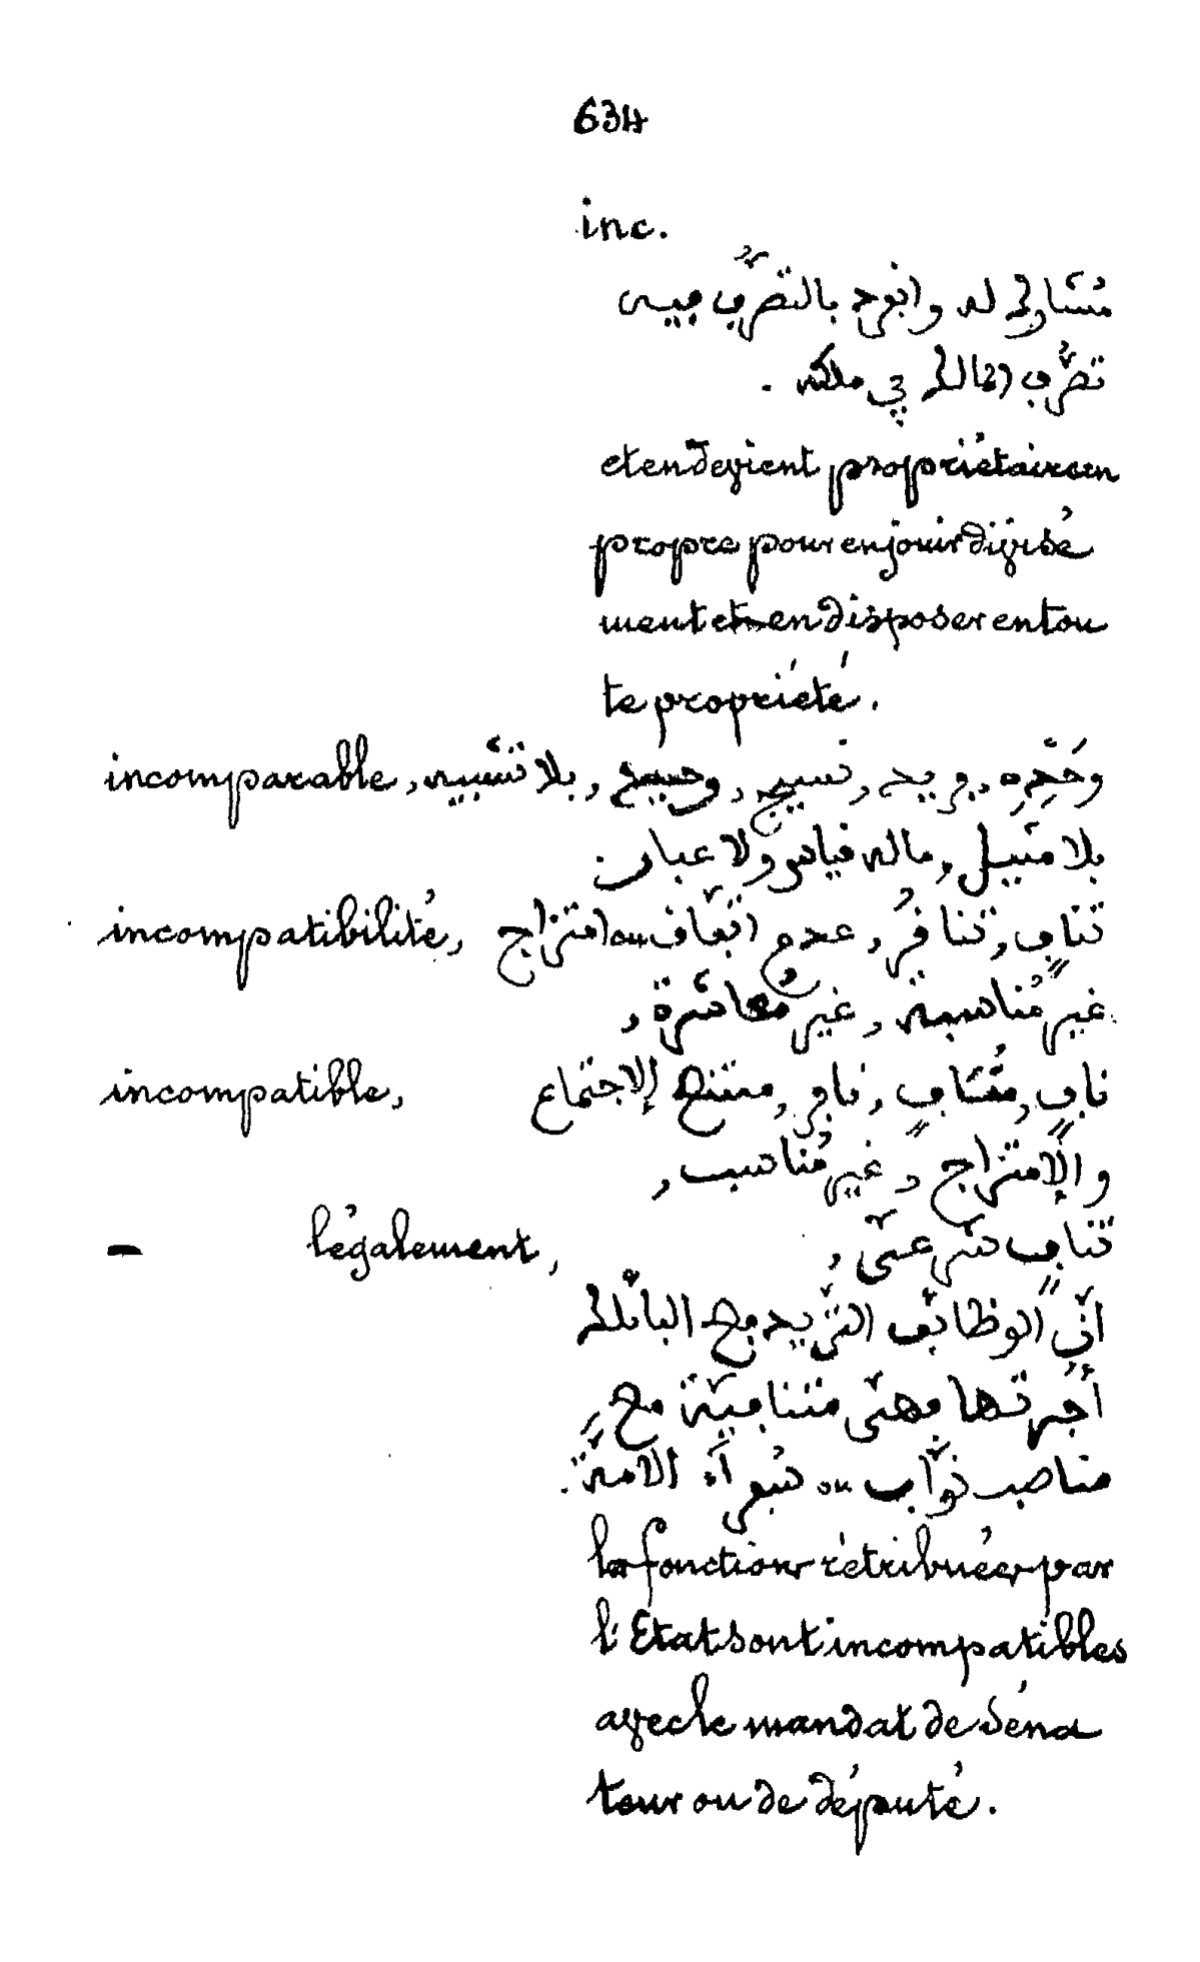 634
inc.
مُشَارِك له وانفرد بالتصرُّف فيه
تصرُّف المالك في ملكه .
et en devient propriétaire en
propre pour en jouir divisé
ment et en disposer en tou
te propriété.
incomparable, وَحْدِهِ, فريد, نسيج, وحيد, بلا تشبيه,
بلا مثيل, ماله قياس ولا عيار.
incompatibilité, تنافٍ, تنافُر, عدم اتّفاق ou امتزاج
غير مُناسبة, غير مُعاشَرة,
incompatible, نافٍ, مُتَنافٍ, نافر, ممتنع الاجتماع
والامتزاج, غير مُناسب,
— légalement, تنافٍ شرعىّ,
انّ الوظائف التى يدفع البايلك
أُجرتها فهىّ متنافيّة مع
مناصب نوّاب ou سُفراء الامّة.
la fonction rétribuées par
l'Etat sont incompatibles
avec le mandat de séna
teur ou de député.